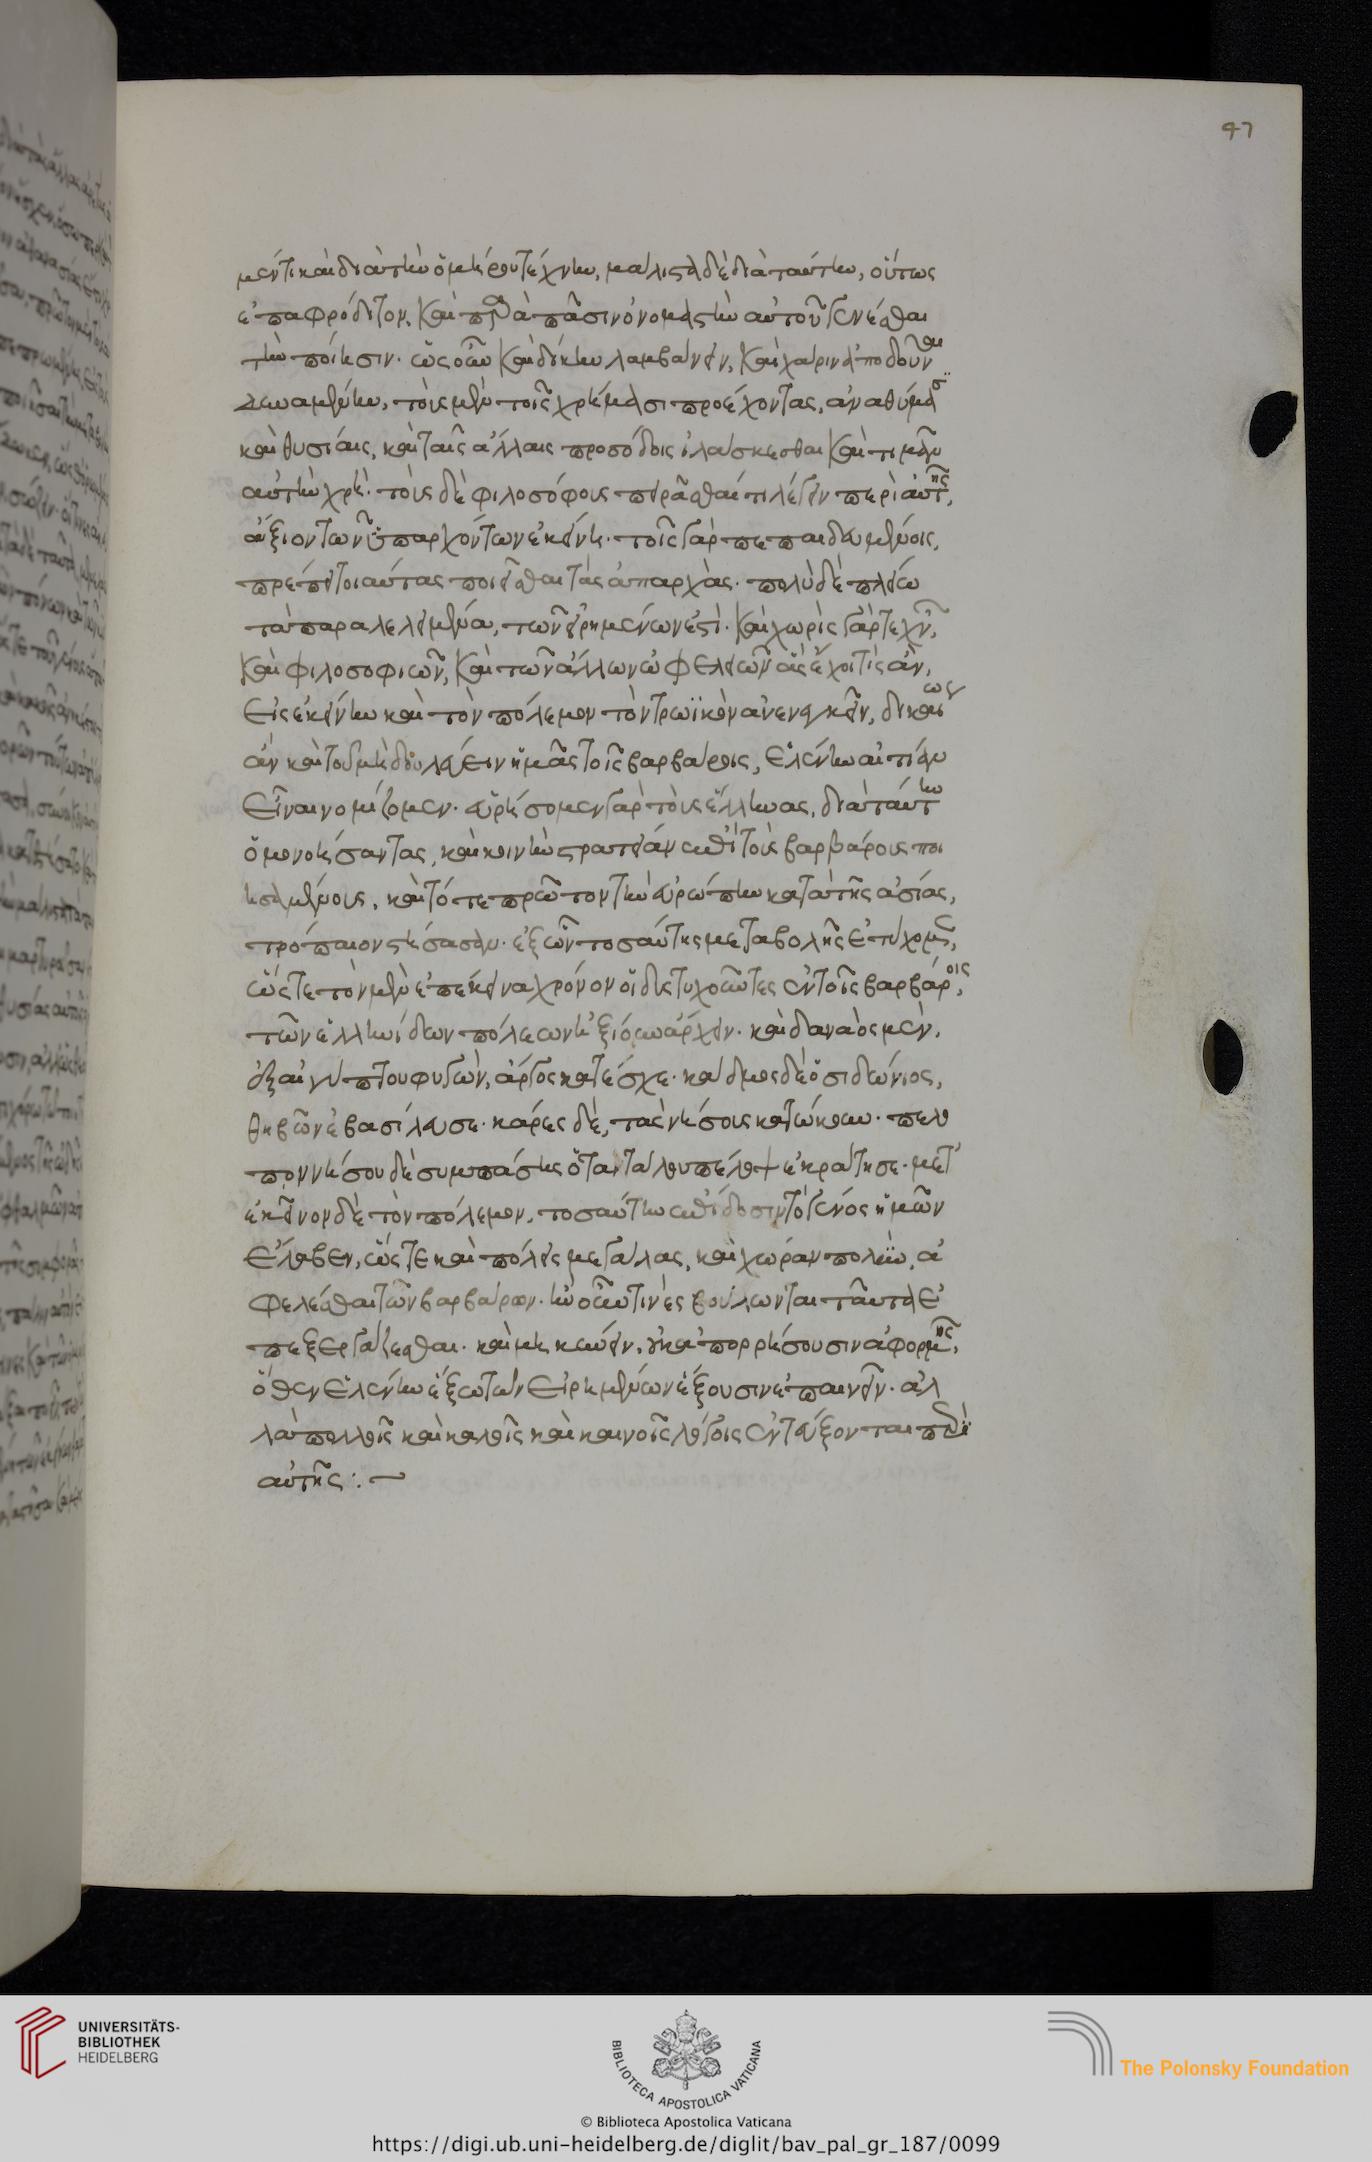 47
μέν τι καὶ διὰ τὴν ὁμήρου τέχνην, μάλιστα δὲ διὰ ταύτην, οὕτως
ἐπαφρόδιτον, καὶ παρὰ πᾶσιν ὀνομαστὴν αὐτοῦ γενέσθαι
τὴν ποίησιν. ὡς οὖν καὶ δίκην λαμβάνειν, καὶ χάριν ἀποδοῦναι
δυναμένην, τοὺς μὲν τοῖς χρήμασι προέχοντας, ἀναθήμασι
καὶ θυσίαις, καὶ ταῖς ἄλλαις προσόδοις ἱλάσκεσθαι καὶ τιμᾶν
αὐτὴν χρή. τοὺς δὲ φιλοσόφους πειρᾶσθαί τι λέγειν περὶ αὐτῆς,
ἄξιον τῶν ὑπαρχόντων ἐκείνη. τοῖς γὰρ πεπαιδευμένοις,
πρέπει τοιαύτας ποιεῖσθαι τὰς ἀπαρχάς. πολὺ δὲ πλείω
τὰ παραλελειμμένα, τῶν εἰρημένων ἐστί. καὶ χωρὶς γὰρ τεχνῶν,
καὶ φιλοσοφιῶν, καὶ τῶν ἄλλων ὠφελειῶν ἃς ἔχοι τις ἂν,
εἰς ἐκείνην καὶ τὸν πόλεμον τὸν τρωϊκὸν ἀνενεγκεῖν, δικαίως
ἂν καὶ τοῦ μὴ δουλεύειν ἡμᾶς τοῖς βαρβάροις, ἑλένην αἰτίαν
εἶναι νομίζομεν. εὑρήσομεν γὰρ τοὺς ἕλληνας, διὰ ταύτην
ὁμονοήσαντας, καὶ κοινὴν στρατείαν ἐπὶ τοὺς βαρβάρους ποι
ησαμένους, καὶ τότε πρῶτον τὴν εὐρώπην κατὰ τῆς ἀσίας,
τρόπαιον στήσασαν. ἐξ ὧν τοσαύτης μεταβολῆς ἐτύχομεν,
ὥστε τὸν μὲν ἐπέκεινα χρόνον οἱ δυστυχοῦντες ἐν τοῖς βαρβάροις,
τῶν ἑλληνίδων πόλεων ἠξίουν ἄρχειν. καὶ δαναὸς μὲν,
ἐξ αἰγύπτου φυγὼν, ἄργος κατέσχε. κάδμος δὲ ὁ σιδώνιος,
θηβῶν ἐβασίλευσε. κάρες δὲ, τὰς νήσους κατώκουν. πελο
ποννήσου δὲ συμπάσης ὁ ταντάλου πέλοψ ἐκράτησε. μετ'
ἐκεῖνον δὲ τὸν πόλεμον, τοσαύτην ἐπίδοσιν τὸ γένος ἡμῶν
ἔλαβεν, ὥστε καὶ πόλεις μεγάλας, καὶ χώραν πολλὴν, ἀ
φελέσθαι τῶν βαρβάρων. ἢν οὖν τινὲς βούλωνται ταῦτα ἐ
πεξεργάζεσθαι. καὶ μηκύνειν, οὐκ ἀπορρήσουσιν ἀφορμῆς,
ὅθεν ἑλένην ἔξω τῶν εἰρημένων ἕξουσιν ἐπαινεῖν. ἀλ
λὰ πολλοῖς καὶ καλοῖς καὶ καινοῖς λόγοις ἐντεύξονται περὶ
αὐτῆς :~
UNIVERSITÄTS-
BIBLIOTHEK
HEIDELBERG
BIBLIOTECA APOSTOLICA VATICANA
The Polonsky Foundation
© Biblioteca Apostolica Vaticana
https://digi.ub.uni-heidelberg.de/diglit/bav_pal_gr_187/0099